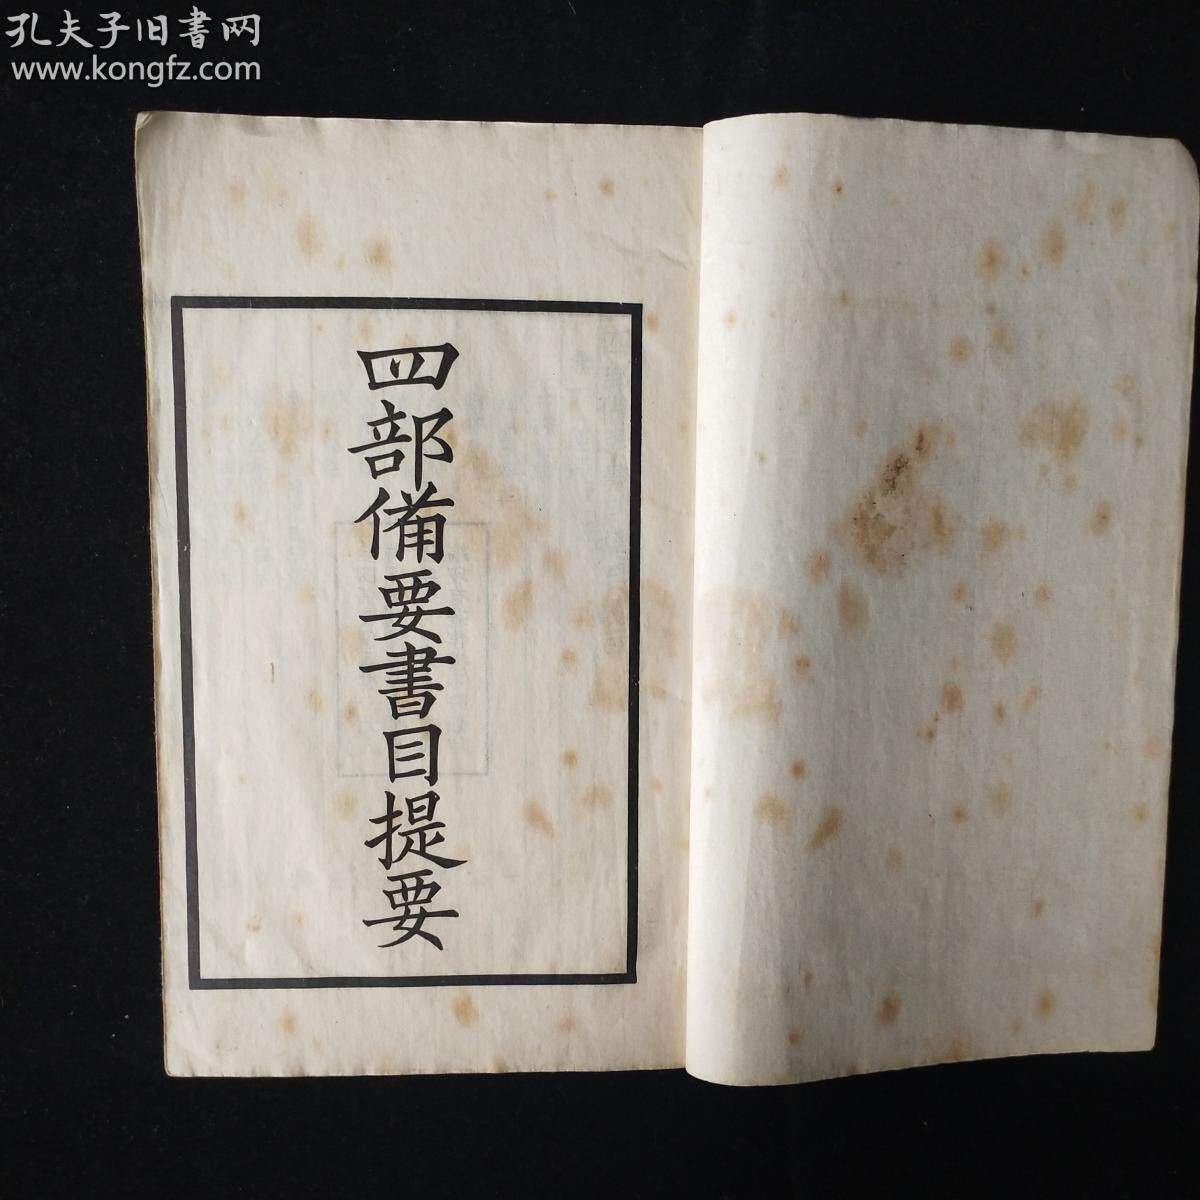 孔夫子旧書网
www.kongfz.com
四部備要書目提要